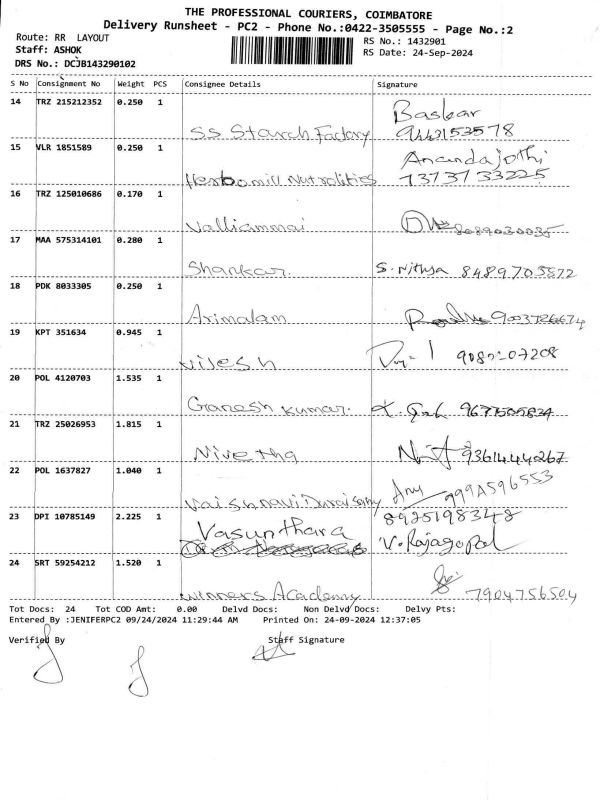 THE PROFESSIONAL COURIERS, COIMBATORE
Delivery Runsheet - PC2 - Phone No.:0422-3505555 - Page No.:2
Route: RR LAYOUT
RS No.: 1432901
Staff: ASHOK
RS Date: 24-Sep-2024
DRS No.: DCJB143290102
S No Consignment No Weight PCS Consignee Details Signature
14 TRZ 215212352 0.250 1
Baskar
SS Starch Factory 9443153578
15 VLR 1851589 0.250 1
Anandajothi
7373733225
16 TRZ 125010686 0.170 1
Valliammai 8089030035
17 MAA 575314101 0.280 1
Shankar. S. Nithya 8489703572
18 PDK 8033305 0.250 1
Arimalam 9003726674
19 KPT 351634 0.945 1
Vijesh
20 POL 4120703 1.535 1
Ganesh Kumar.
21 TRZ 25026953 1.815 1
Nivetha 9361444267
22 POL 1637827 1.040 1
Vaishnavi Duraisamy
23 DPI 10785149 2.225 1
8925198348
Vasunthara V. Rajagopal
24 SRT 59254212 1.520 1
Winners Academy 7904756504
Tot Docs: 24 Tot COD Amt: 0.00 Delvd Docs: Non Delvd Docs: Delvy Pts:
Entered By :JENIFERPC2 09/24/2024 11:29:44 AM Printed On: 24-09-2024 12:37:05
Verified By Staff Signature